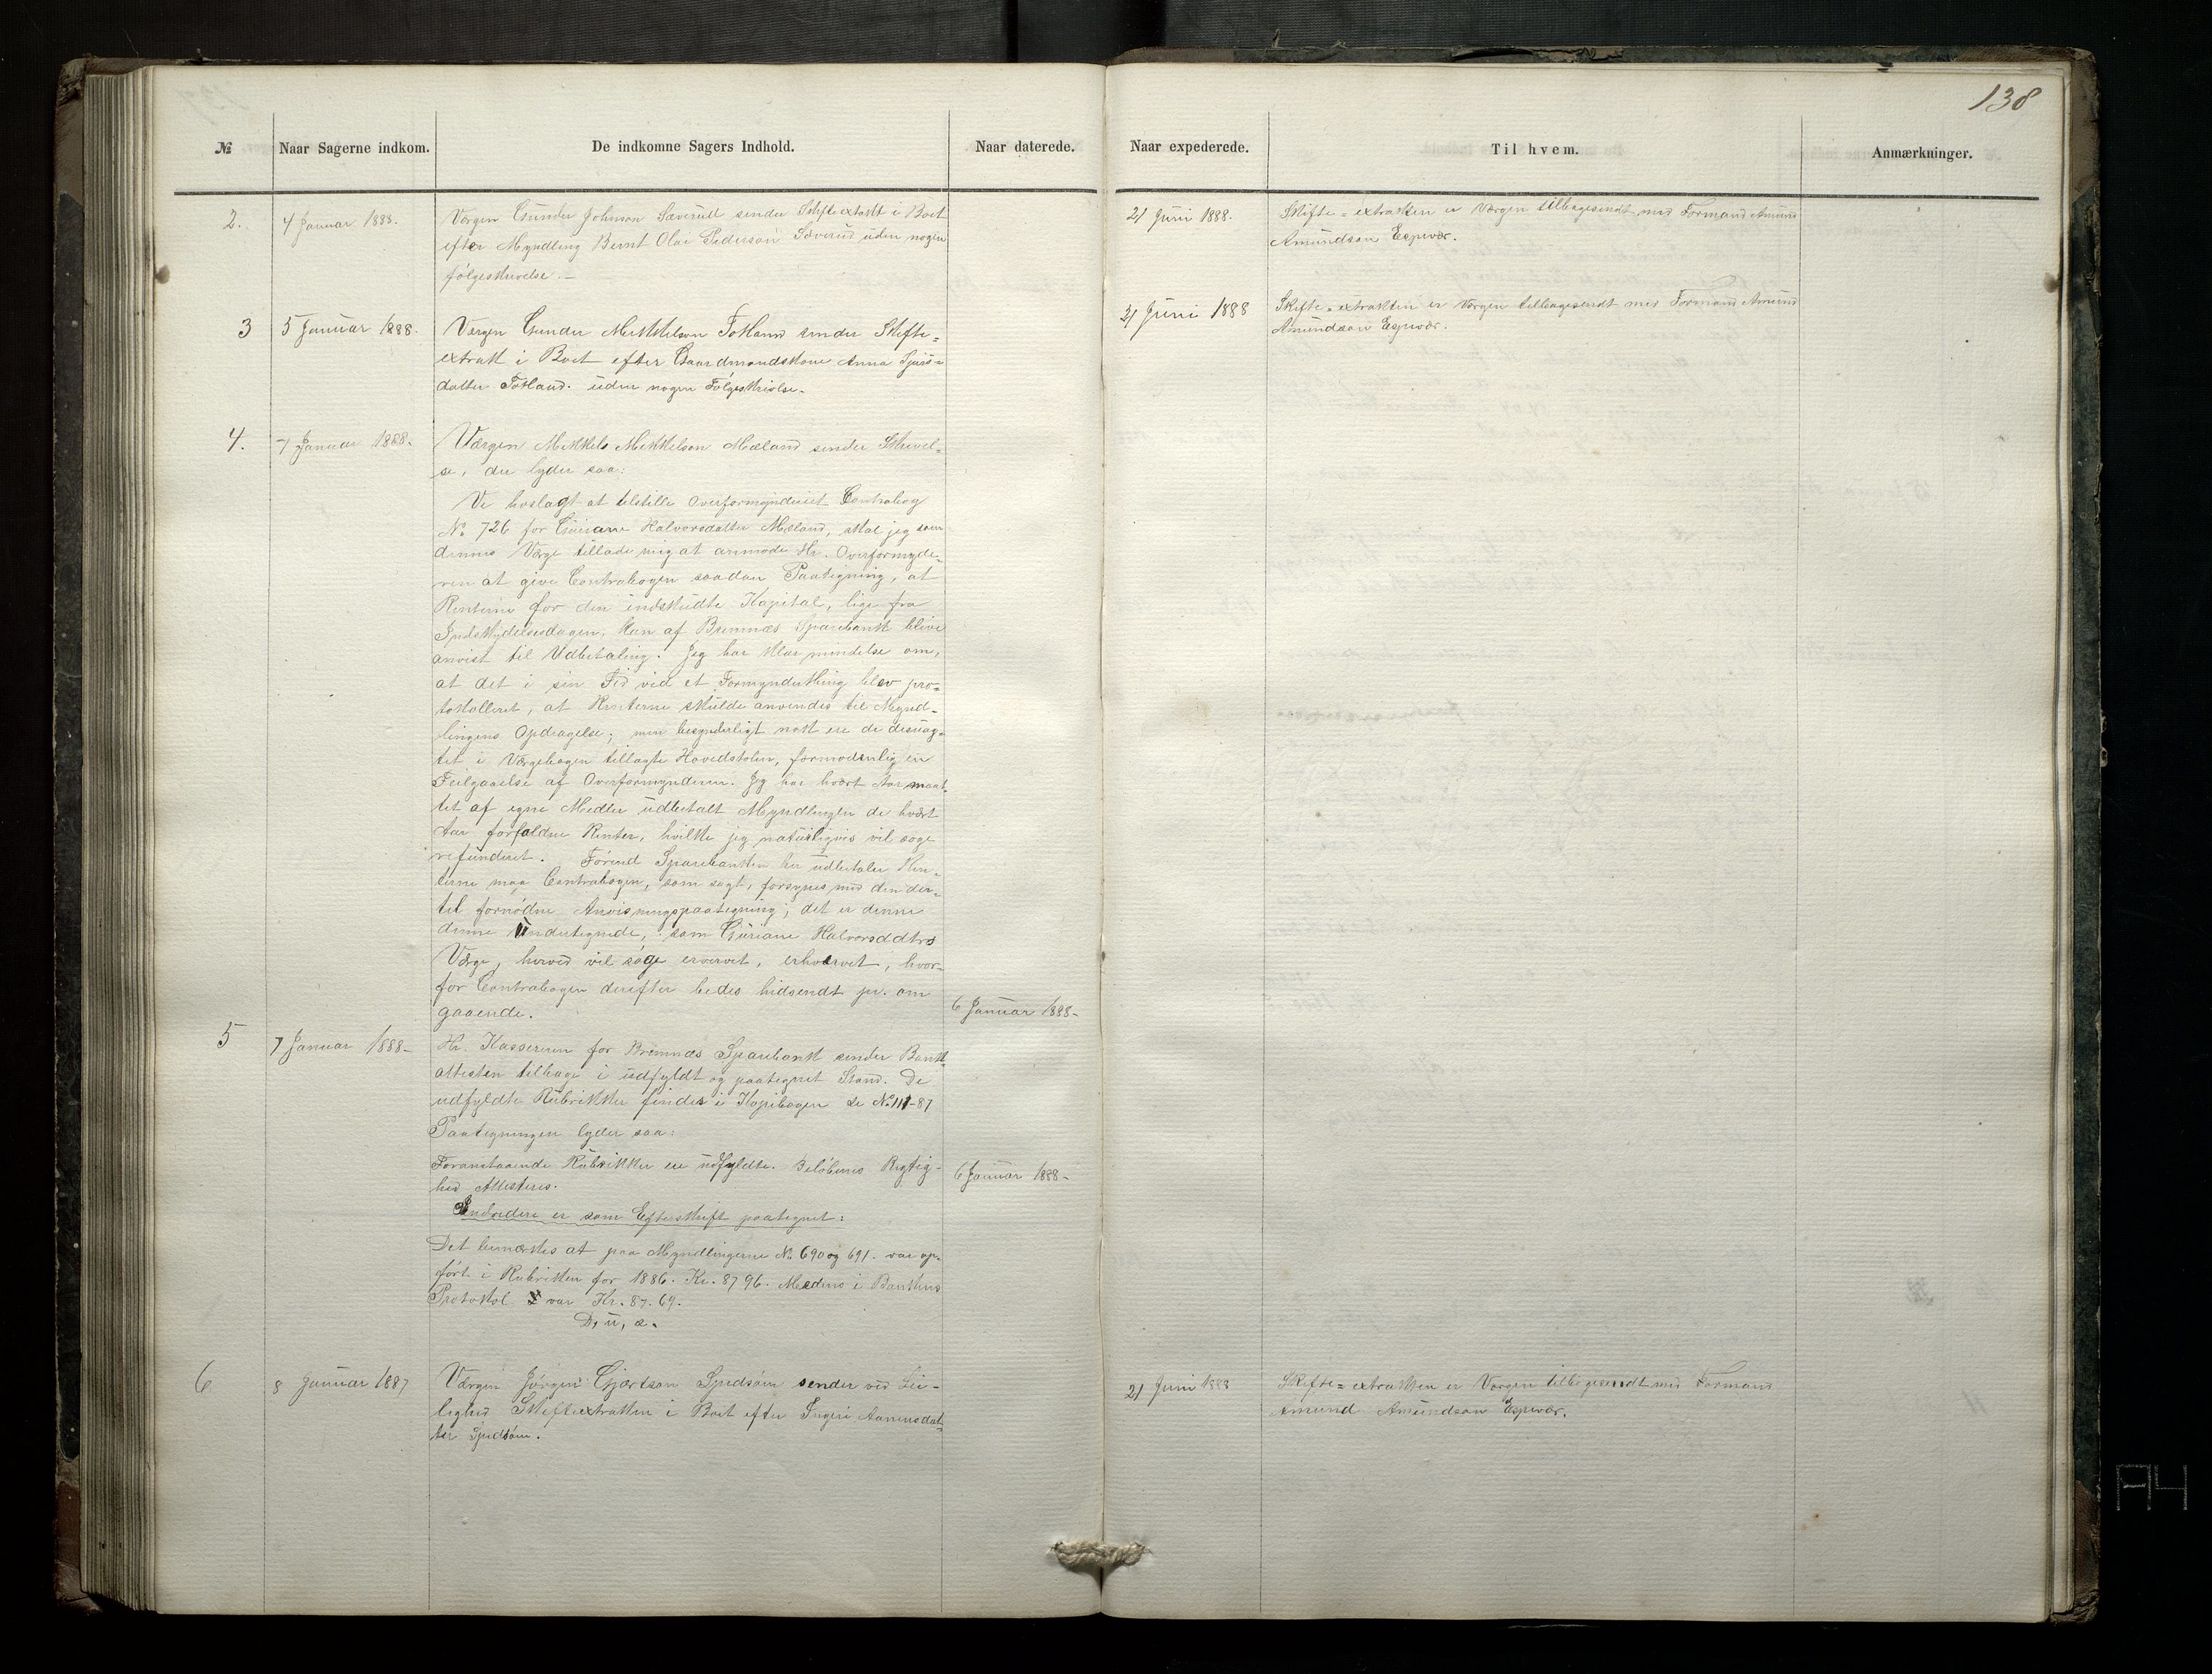 138
№ Naar Sagerne indkom. De indkomne Sagers Indhold. Naar daterede. Naar expederede. Til hvem. Anmærkninger.
2. 4 Januar 1888. Værgen Gunder Johnson Sæverud sender Skifteextrakt i Boet
efter Myndling Bernt Olai Pederson Sæverud uden nogen
følgeskrivelse.—
21 Juni 1888. Skifte=extrakten er Værgen tilbagesendt med Formand Amund
Amundson Espevær.
3 5 Januar 1888. Værgen Gunder Mikkelson Totland sender Skifte=
extrakt i Boet efter Gaardmandskone Anna Sjurs=
datter Totland. uden nogen Følgeskrivelse.
21 Juni 1888 Skifte=extrakten er Værgen tilbagesendt med Formand Amund
Amundson Espevær.
4. 7 Januar 1888. Værgen Mikkel Mikkelson Mæland sender Skrivel=
se, der lyder saa:
Ve hoslagt at tilstille Overformynderiet Contrabog
№ 726 for Guriane Halvorsdatter Mæland, skal jeg som
dennes Værge tillade mig at anmode Hr. Overformynde-
ren at give Contrabogen saadan Paategning, at
Renterne for den indskudte Kapital, lige fra
Indskydelsesdagen, kan af Bremnæs Sparebank blive
anvist til Udbetaling. Jeg har klar mindelse om,
at det i sin Tid ved et Formynderthing blev pro=
tokolleret, at Renterne skulde anvendes til Mynd-
lingens Opdragelse; men besynderligt nok ere de desuag=
tet i Værgebogen tillagte Hovedstolen, formodentlig en
Feilgaaelse af Overformynderen. Jeg har hvært Aar maat-
tet af egne Midler udbetalt Myndlingen de hvært
Aar forfaldne Renter, hvilke jeg naturligvis vil søge
refunderet. Førend Sparebanken her udbetaler Ren-
terne maa Contrabogen, som sagt, forsynes med den der-
til fornødne Anvisningspaategning; det er denne
denne Undertegnede, som Guriane Halvorsddtrs
Værge, herved vil søge ervervet, erhvervet, hvor-
for Contrabogen derefter bedes hidsendt pr. om
gaaende. 6 Januar 1888-
5 7 Januar 1888- Hr. Kassereren for Bremnæs Sparebank sender Bank-
attesten tilbage i udfyldt og paategnet Stand. De
udfyldte Rubrikker findes i Kopibogen se № 111-87
Paategningen lyder saa:
Foranstaaende Rubrikker ere udfyldte. Beløbenes Rigtig-
hed Attesteres. 6 Januar 1888-
Endvidere er som Efterskrift paategnet:
Det bemærkes at paa Myndlingerne № 690 og 691. var op-
ført i Rubrikken for 1886. Kr. 87 96. Medens i Bankens
Protokol var Kr. 87. 69.
D, u, s.
6 8 Januar 1887 Værgen Jørgen Gjærtson Spidsøen sender ved Lei-
lighed Skifteextrakten i Boet efter Ingeri Aamusdat=
ter Spidsøen.
21 Juni 1888 Skifte=extrakten er Værgen tilbagesendt med Formand
Amund Amundson Espevær.